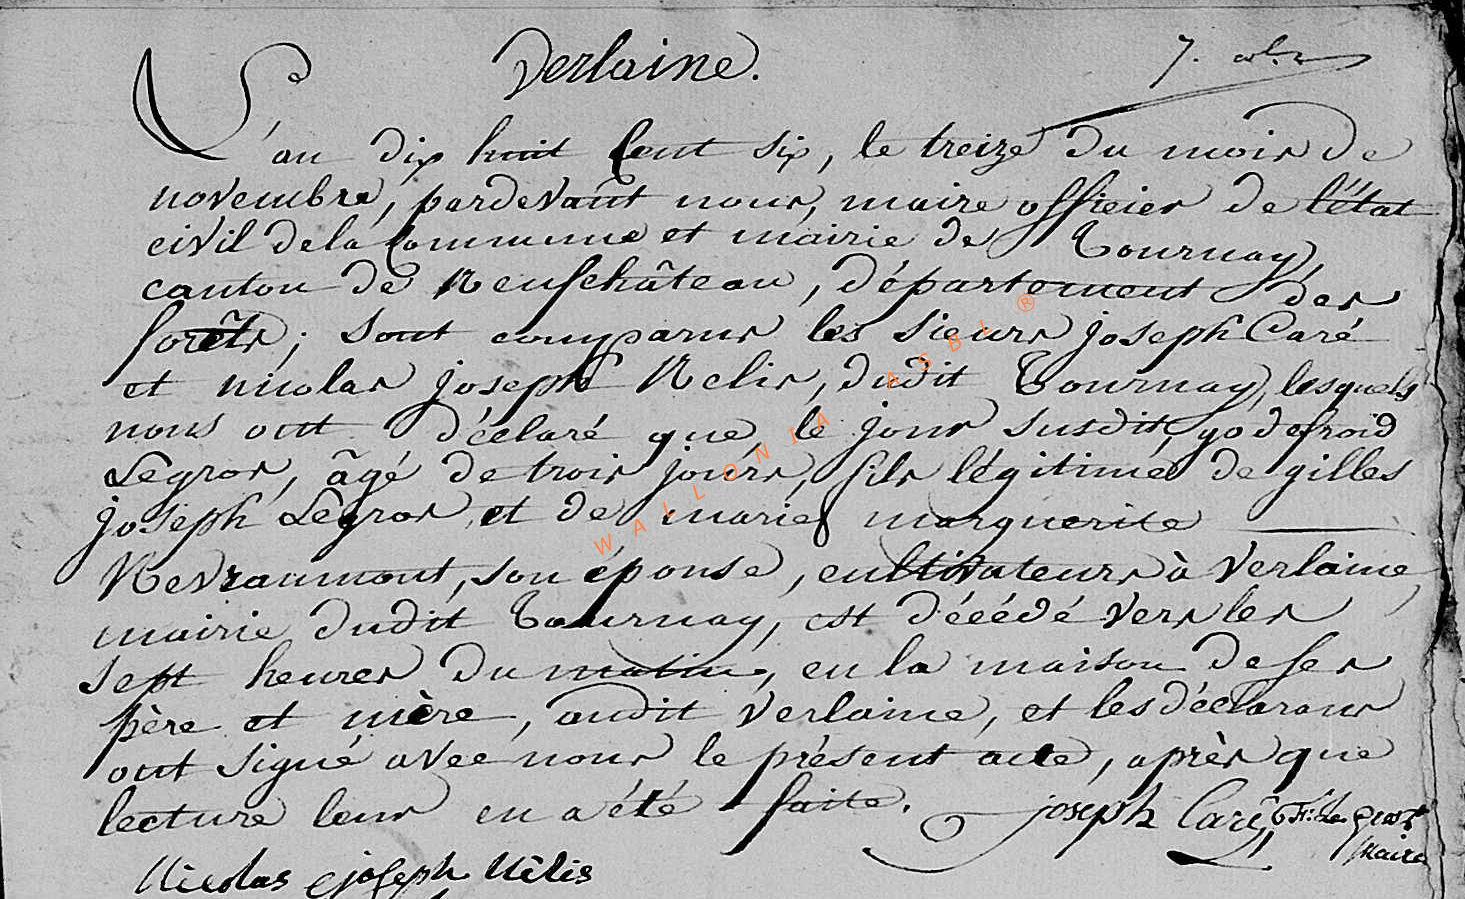 Verlaine.
7.
L'an dix huit Cent six, le treize du mois de
novembre, pardevant nous, maire officier de l'état
civil de la Commune et mairie de Tournay,
canton de Neufchâteau, département des
forêts; sont comparus les sieurs joseph Caré
et nicolas joseph Nelis, dudit Tournay, lesquels
nous ont déclaré que le jour susdit, godefroid
Legros, âgé de trois jours, fils légitime de gilles
joseph Legros, et de marie marguerite
Nevraumont, son épouse, cultivateurs à Verlaine,
mairie dudit Tournay, est décédé vers les
sept heures du matin, en la maison de ses
père et mère, audit Verlaine, et les déclarans
ont signé avec nous le présent acte, après que
lecture leur en a été faite.
joseph Caré
maire
Nicolas joseph Nélis
WALLONIA ASBL ®